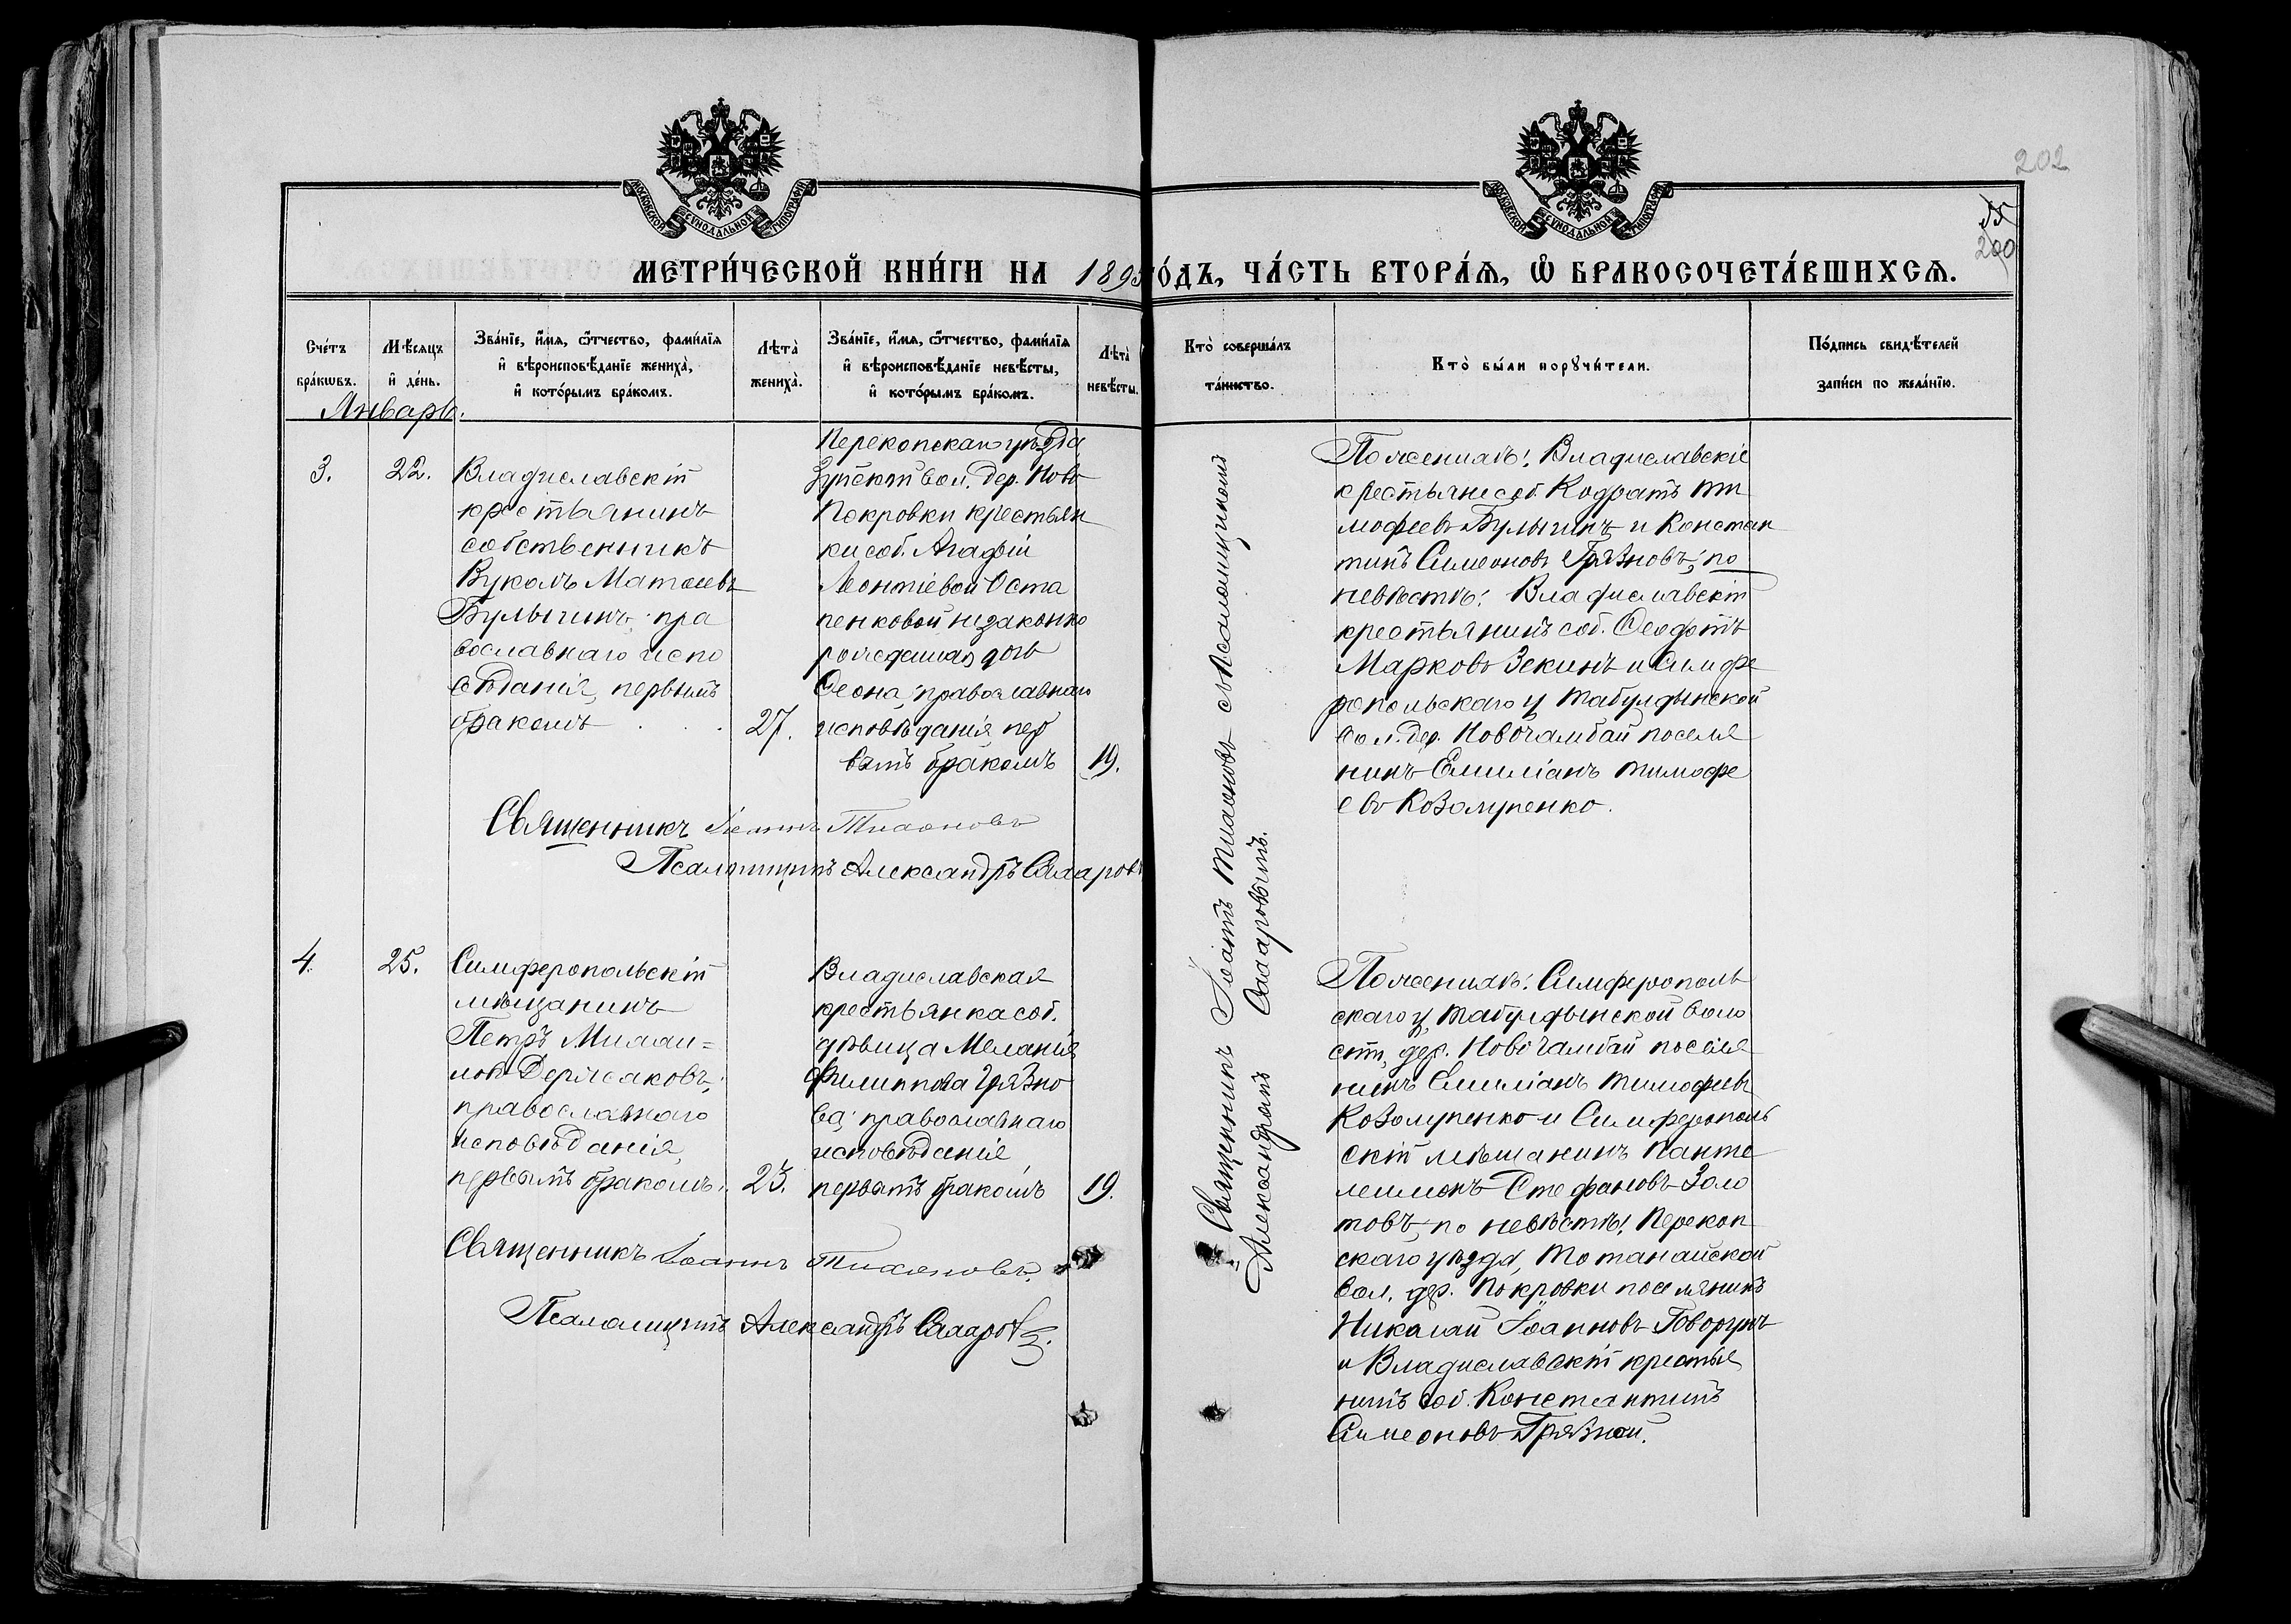 202
200
МОСКОВСКОЙ СѴНОДАЛЬНОЙ ТИПОГРАФІИ
МОСКОВСКОЙ СѴНОДАЛЬНОЙ ТИПОГРАФІИ
МЕТРИ́ЧЕСКОЙ КНИ́ГИ НА 1895 ГО́ДЪ, ЧА́СТЬ ВТОРА́Ѧ, Ѡ҆ БРАКОСОЧЕТА́ВШИХСѦ.
Сче́тъ
бра́кѡвъ.
Мѣ́сѧцъ
и҆ де́нь.
Зва́нїе, и҆́мѧ, ѻ҆́тчество, фами́лїѧ
и҆ вѣроисповѣ́данїе жениха̀,
и҆ кото́рымъ бра́комъ.
Лѣта̀
жениха̀.
Зва́нїе, и҆́мѧ, ѻ҆́тчество, фами́лїѧ
и҆ вѣроисповѣ́данїе невѣ́сты,
и҆ кото́рымъ бра́комъ.
Лѣта̀
невѣ́сты.
Кто̀ соверша́лъ
та́инство.
Кто̀ бы́ли порꙋчи́тели.
По́дпись свидѣ́телей
за́писи по жела́нїю.
Январь.
3.
22.
Владиславскій
крестьянинъ
собственникъ
Вуколъ Матѳеевъ
Булыгинъ; пра
вославнаго испо
вѣданія, первымъ
бракомъ . . .
27.
Перекопскаго уѣзда
Зуйской вол. дер. Ново
Покровки крестьян
ки соб. Агафіи
Леонтіевой Оста
пенковой незаконно
рожденная дочь
Ѳеона; православнаго
исповѣданія пер
вымъ бракомъ
19.
Священникъ Іоаннъ Тихоновъ
Псаломщикъ Александръ Сахаровъ
Священникъ Іоаннъ Тихоновъ съ Псаломщикомъ
Александромъ Сахаровымъ.
По женихѣ: Владиславскіе
крестьяне соб. Кодратъ Ти
мофеевъ Булыгинъ и Констан
тинъ Симеоновъ Грязновъ; по
невѣстѣ: Владиславскій
крестьянинъ соб. Ѳеодотъ
Марковъ Зекинъ и Симфе
ропольскаго у Табулдынской
вол. дер. Новочамбай поселя
нинъ Емиліанъ Тимофе
евъ Козолупенко.
4.
25.
Симферопольскій
мѣщанинъ
Петръ Михаи=
ловъ Держаковъ;
православнаго
исповѣданія,
первымъ бракомъ.
23.
Владиславская
крестьянка соб.
дѣвица Меланія
Филиппова Грязно
ва; православнаго
исповѣданія,
первымъ бракомъ
19.
Священникъ Іоаннъ Тихоновъ.
Псаломщикъ Александръ Сахаровъ.
По женихѣ: Симферополь
скаго у, Табулдынской воло
сти, дер. Новочамбай поселя
нинъ Емиліанъ Тимофеевъ
Козолупенко и Симферополь
скій мѣщанинъ Панте
леимонъ Стефановъ Золо
товъ; по невѣстѣ: Перекоп
скаго уѣзда, Тотанайской
вол. дер. Покровки поселянинъ
Николай Іоанновъ Говорунъ
и Владиславскій крестья
нинъ соб. Константинъ
Симеоновъ Грязной.